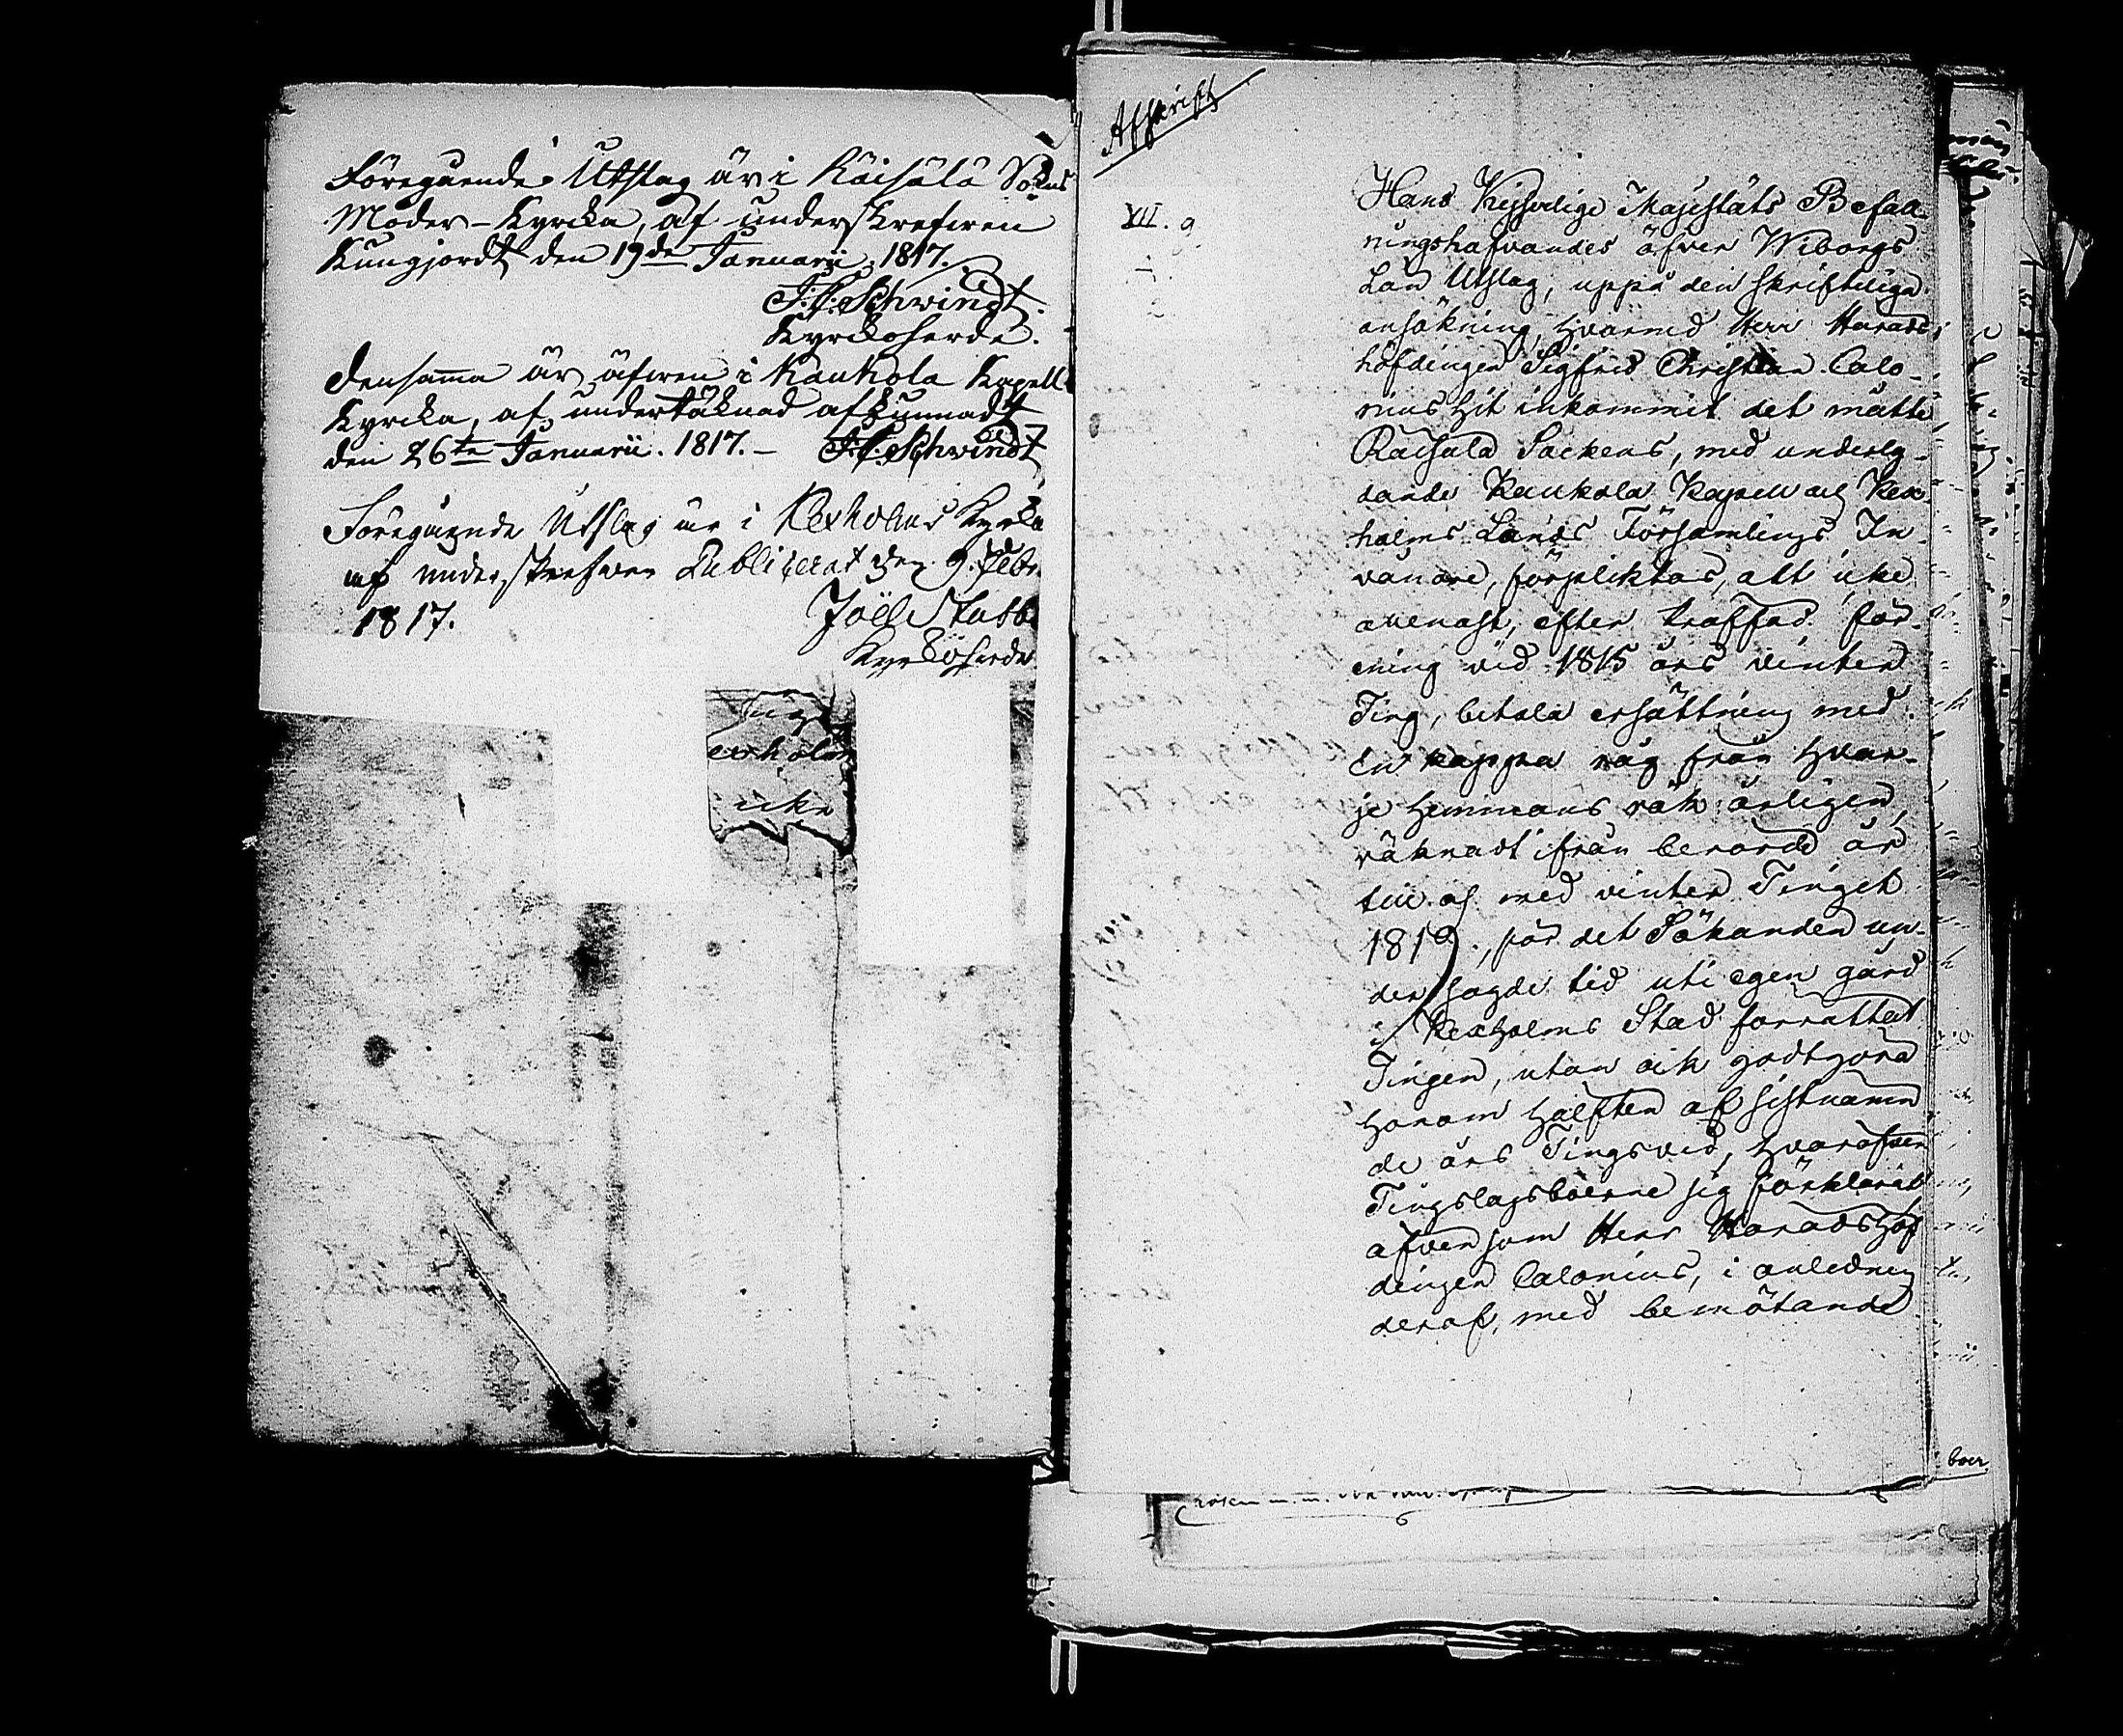 Föregående Utslag är i Räisälä Sokns
Moder-Kyrcka, af underskrefwen
Kungjordt den 19de Januarii 1817.
J. C. Schwindt.
Kyrckoherde.
Densamma är äfwen i Kaukola Kapell
Kyrcka, af undertäknad afkunnadt
den 26te Januarii. 1817. – J. C. Schwindt
Föregåg̣ende Utslag är i Kexholms Kyrko
af underskrefwen Publicerat den 9. Febr
1817. Joël Stabb
Kyrkoherde
exholm
icke
Afskrift
XII. 9
Hans Kejserlige Majestäts Befall-
ningshafvandes öfver Wiborgs
Län Utslag, uppå den skriftelige
ansökning, hvarmed Herr Härads
höfdingen Sigfrid Christian Calo-
nius hit inkommit det måtte
Räisälä Sockens, med underly-
dande Kaukola Kapell och Kex-
holms Lands Församlings In-
vånare, förpliktas, att icke
allenast, efter träffad för-
ening vid 1815 års vinter
Ting, betala ersättning med
En kappa råg från hvar-
je hemmans rök årligen,
räknadt ifrån berörde år
till och med vinter Tinget
1819., för det Sökanden un-
der sagde tid uti egen gård
i Kexholms Stad förrättat
Tingen, utan ock godtgöra
honom hälften af sistnämn
de års Tingsved, hvaröfver
Tingslagsboerne sig förklarat
äfvensom Herr Häradshöf
dingen Calonius, i anledning
deraf, med bemötande
boer